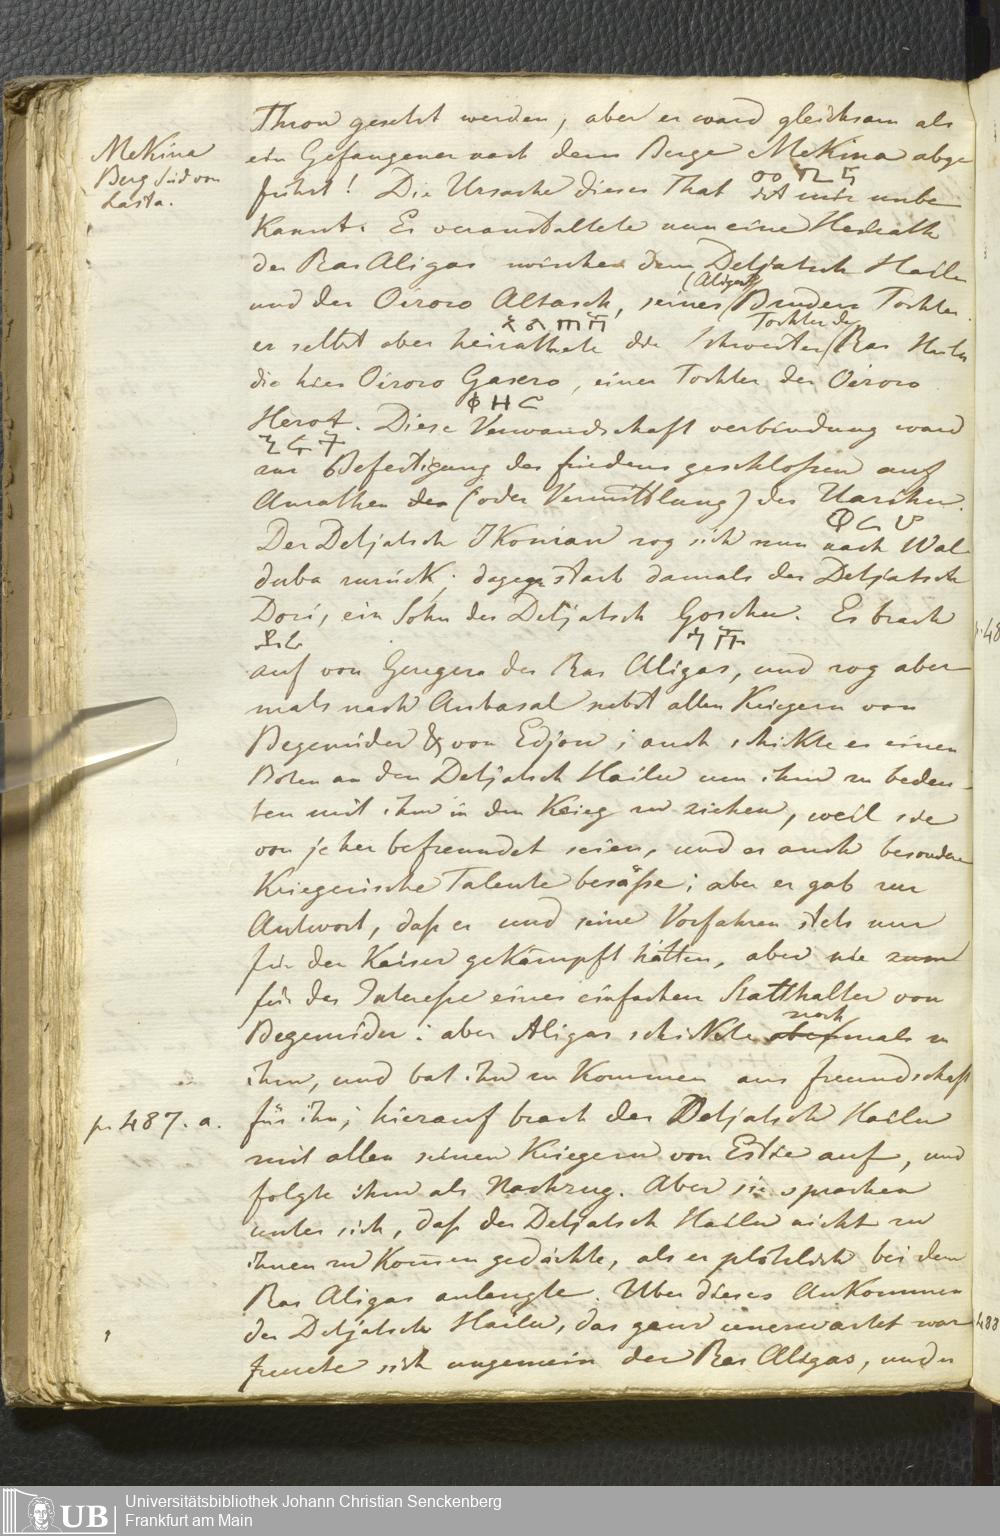 Thron gesetzt werden, aber er ward gleichsam als
ein Gefangener nach dem Berge MeKina abge
führt! Die Ursache dieser That ist mir unbe
Kannt. Er veranstaltete nun eine Heirath
MeKina
Berg Süd von
Lasta.
der Ras Aligas zwischen dem Detjatsch Hailu
und der Oiroro Altasch, seines (Aligas) Bruders Tochter.
er selbst aber heirathete die Schwester Tochter des Ras Hailu
die hies Oiroro Gasero, einer Tochter der Oiroro
Herot. Diese Verwandschaft verbindung ward
zur Befestigung des friedens geschloßen auf
Anrathen des (oder Vermittlung) des
Der Detjatsch IKonian zog sich nun nach Wal
duba zurück; dagegen starb damals der Detjatsch
Dori, ein Sohn des Detjatsch Goschu. Es brach
auf von Geregera der Ras Aligas, und zog aber
mals nach Anbasal nebst allen Kriegern von
Begemider & von Edjow; auch schikte er einen
Boten an den Detjatsch Hailu um ihm zu bedeu-
ten mit ihm in den Krieg zu ziehen, weil sie
von jeher befreundet seien, und er auch besondere
Kriegerische Talente besäße; aber er gab zur
Antwort, daß er und seine Vorfahren stets nur
für den Kaiser geKämpft hätten, aber nie zum
für das Intereße eines einfachen Statthalter von
Begemider: aber Aligas schiKte noch mals zu
ihm, und bat ihn zu Kommen aus freundschaft
p. 487. a.
für ihn; hierauf brach der Detjatsch Hailu
mit allen seinen Kriegern von Estie auf, und
folgte ihm als Nachzug. Aber sie sprachen
unter sich, daß der Detjatsch Hailu nicht zu
ihnen zu Komen gedächte, als er plötzlich bei dem
Ras Aligas anlangte. Uber dieses AnKommen
des Detjatsch Hailu, das ganz unerwartet war
freute sich ungemein der Ras Aligas, und er
UB
Universitätsbibliothek Johann Christian Senckenberg
Frankfurt am Main